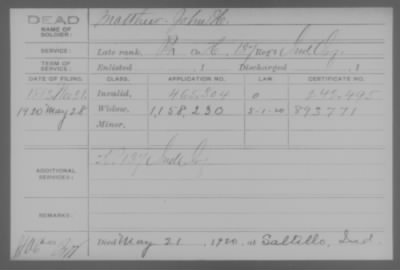 DEAD
NAME OF SOLDIER:
Matthew John H.
SERVICE:
Late rank, Co. H, 137 Reg't Ind. Inf.
TERM OF SERVICE:
Enlisted , 1 Discharged , 1
DATE OF FILING. CLASS. APPLICATION NO. LAW. CERTIFICATE NO.
Invalid,
1920 May 28 Widow, 1,158,230 5-1-20 893771
Minor,
ADDITIONAL SERVICES:
137 Ind. Inf.
REMARKS:
Died May 21, 1920, at Saltillo, Ind.